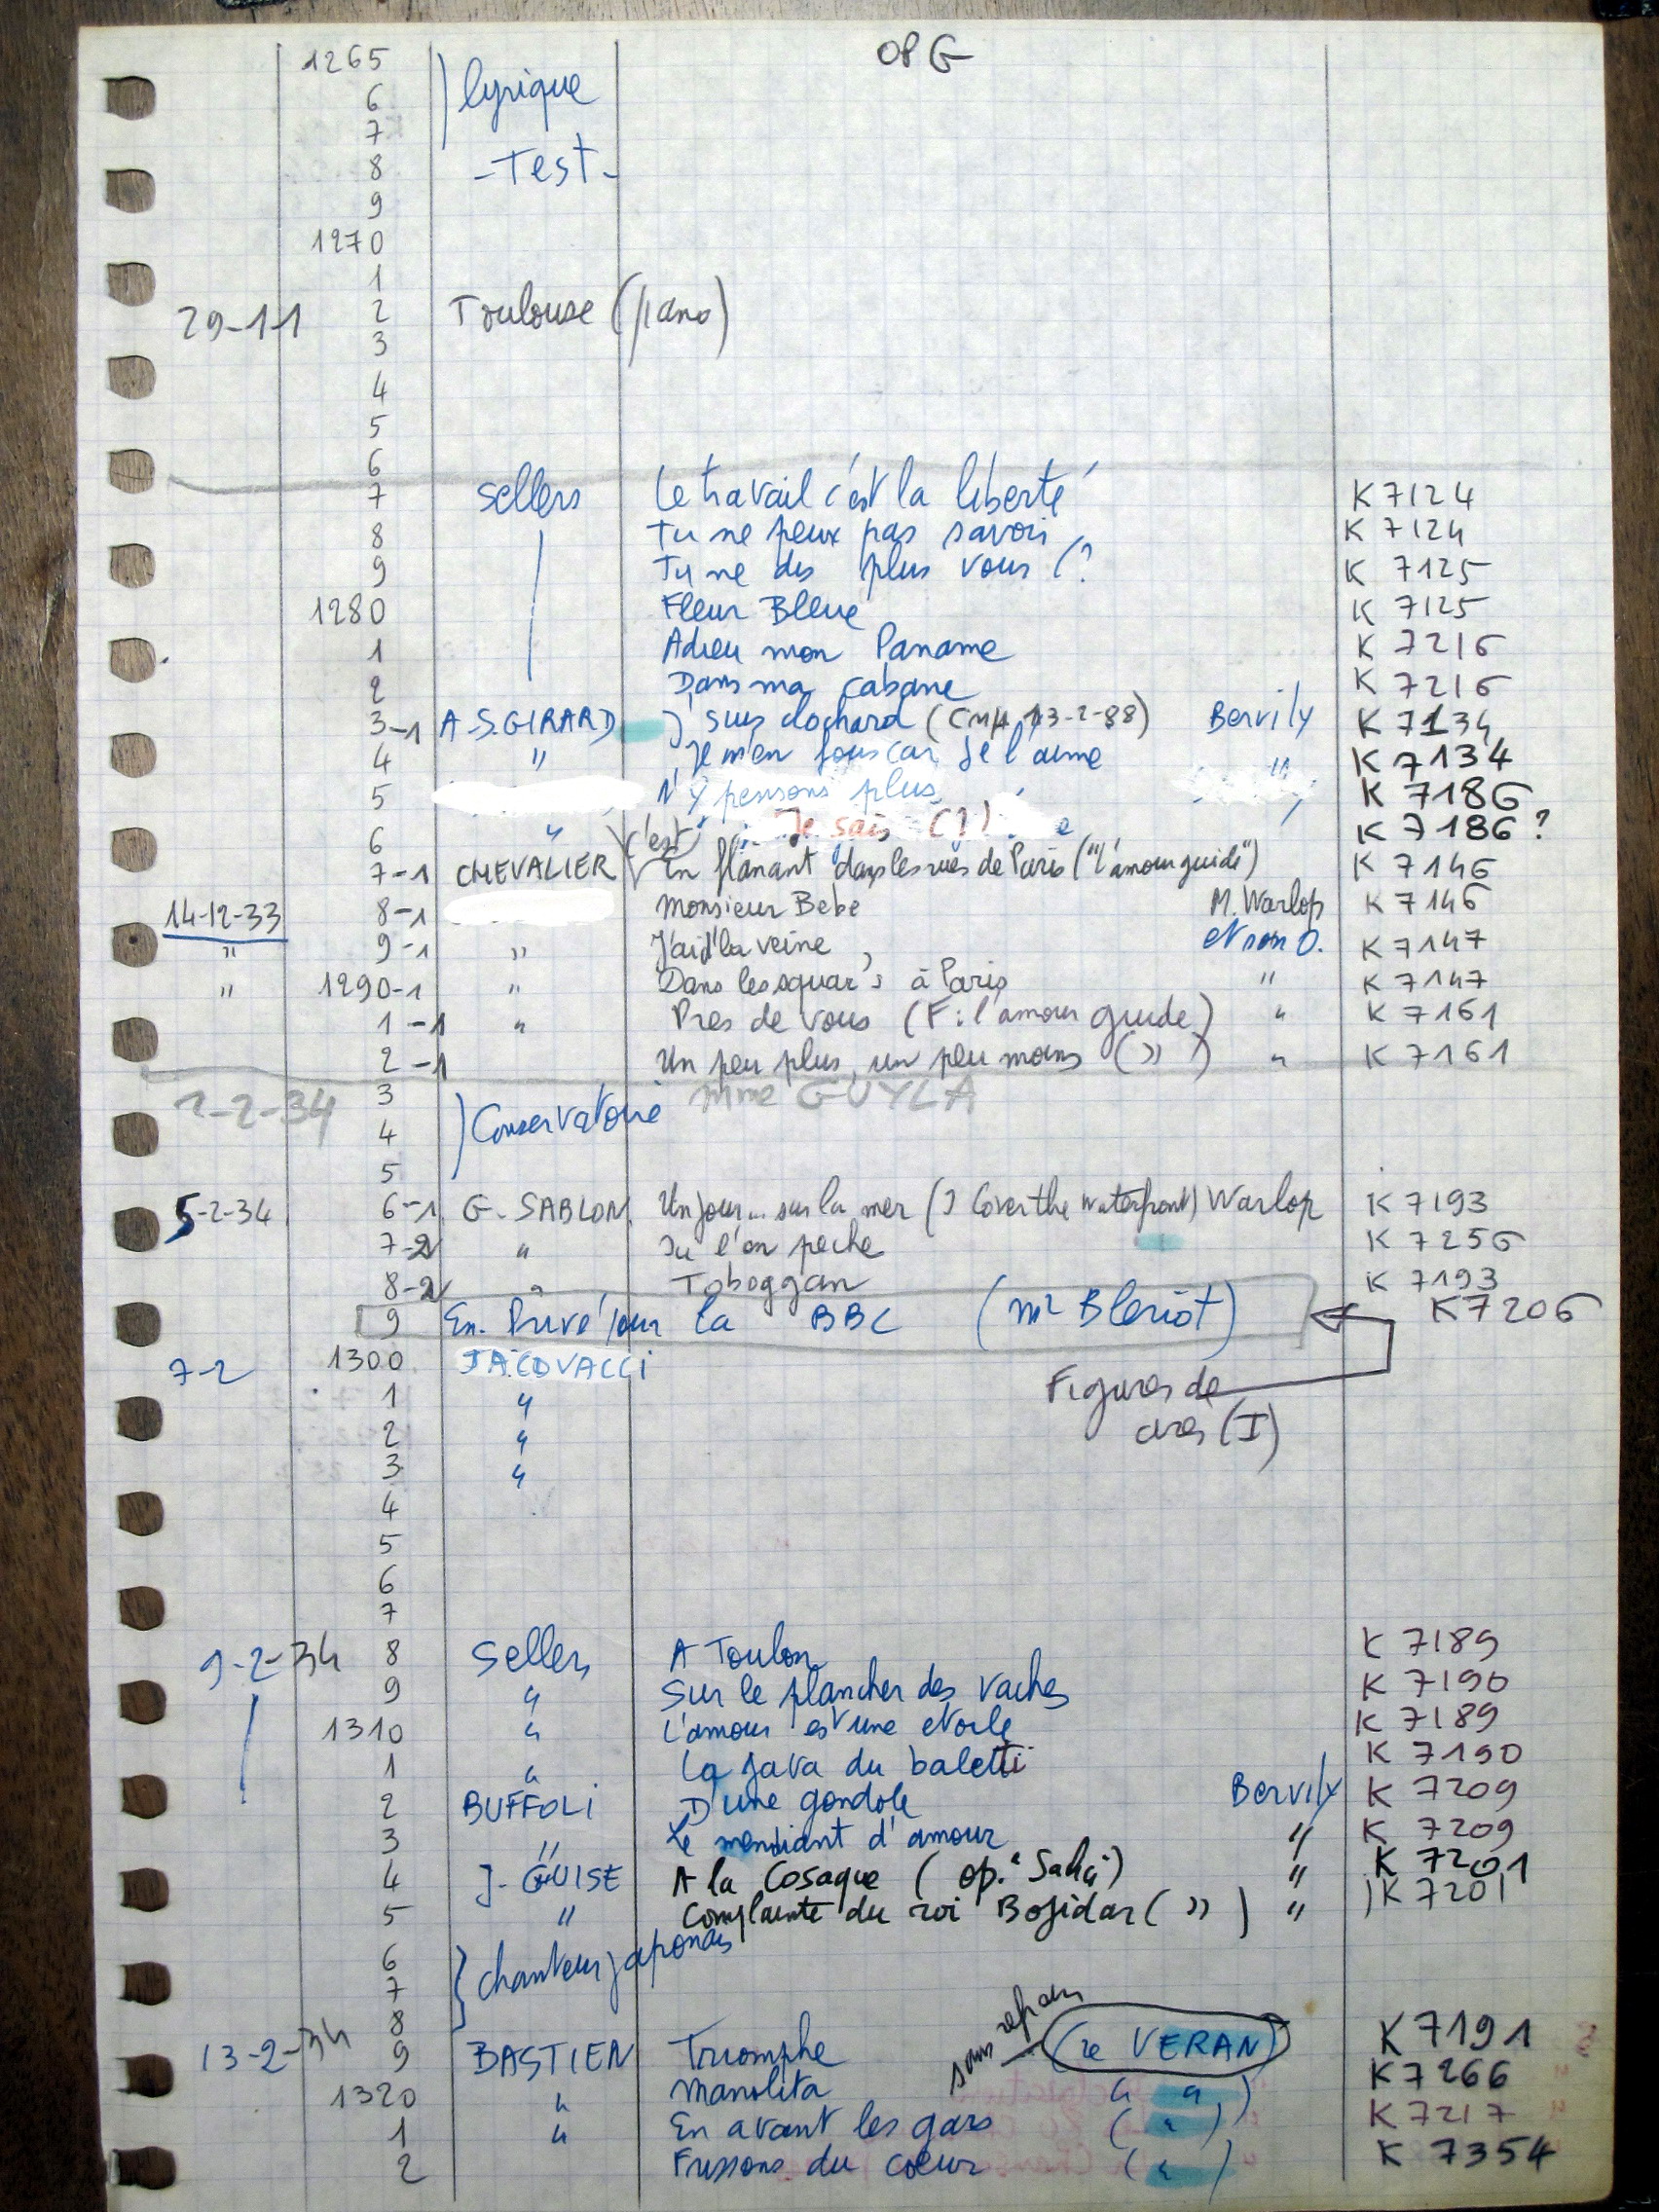 OPG
1265 lyrique
6
7
8 -Test-
9
1270
1
29-11 2 Toulouse (piano)
3
4
5
6
7 Sellers Le travail c'est la liberté K 7124
8 Tu ne peux pas savoir K 7124
9 Tu ne dis plus vous (? K 7125
1280 Fleur Bleue K 7125
1 Adieu mon Paname K 7216
2 Dans ma cabane K 7216
3-1 A-S.GIRARD J'suis clochard (CMH 13-2-88) Bervily K 7134
4 " Je m'en fous car je l'aime K 7134
5 N'y pensons plus " K 7186
6 " Je sais (?) K 7186 ?
7-1 CHEVALIER (c'est) En flanant dans les rues de Paris ("l'amour guide") K 7146
14-12-33 8-1 Monsieur Bébé M. Warlop K 7146
" 9-1 " J'ai d'la veine et son O. K 7147
" 1290-1 " Dans les squar's à Paris " K 7147
1-1 " Pres de vous (F: l'amour guide) " K 7161
2-1 Un peu plus, un peu moins (") " K 7161
2-2-34 3 Conservatoire Mme GUYLA
4
5
5-2-34 6-1 G. SABLON Un jour... sur la mer (I Cover the waterfront) Warlop K 7193
7-2 " Ou l'on peche K 7256
8-2 " Toboggan K 7193
9 En Privé pour la BBC (mr Bleriot) K7206
7-2 1300 JACOVACCI Figures de
1 " ares (I)
2 "
3 "
4
5
6
7
9-2-34 8 Sellers A Toulon K 7189
9 " Sur le plancher des vaches K 7190
1310 " L'amour est une etoile K 7189
1 " La java du baletti K 7190
2 BUFFOLI D'une gondole Bervily K 7209
3 " Le mendiant d'amour " K 7209
4 J. GUISE A la Cosaque (op. " ) " K 7201
5 " Complainte du roi Bojidar (") " K 7201
6 chanteur japonais
7
8 sans refrain
13-2-34 9 BASTIEN Triomphe (re VERAN) K7191
1320 " Manolita " " ) K7266
1 " En avant les gars ( " ) K7217
2 Frissons du coeur ( " ) K 7354